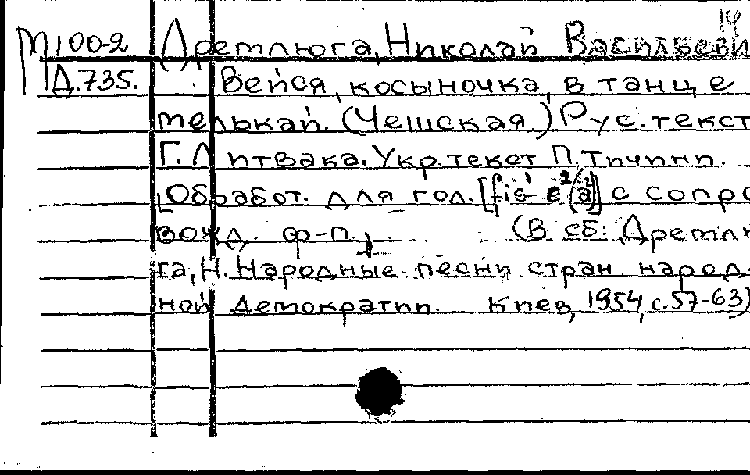 14
М100-2 Дремлюга, Николай Васильеви
Д.735. Вейся, косыночка, в танце
мелькай. (Чешская) Рус. текст
Г. Литвака. Укр. текст П. Тичини.
[Обработ. для гол. [fis¹-e²(a²)] с сопро
вожд. ф-п. (В сб: Дремлю
га, Н. Народные песни стран народ
ной демократии. Киев, 1954, с. 57-63)